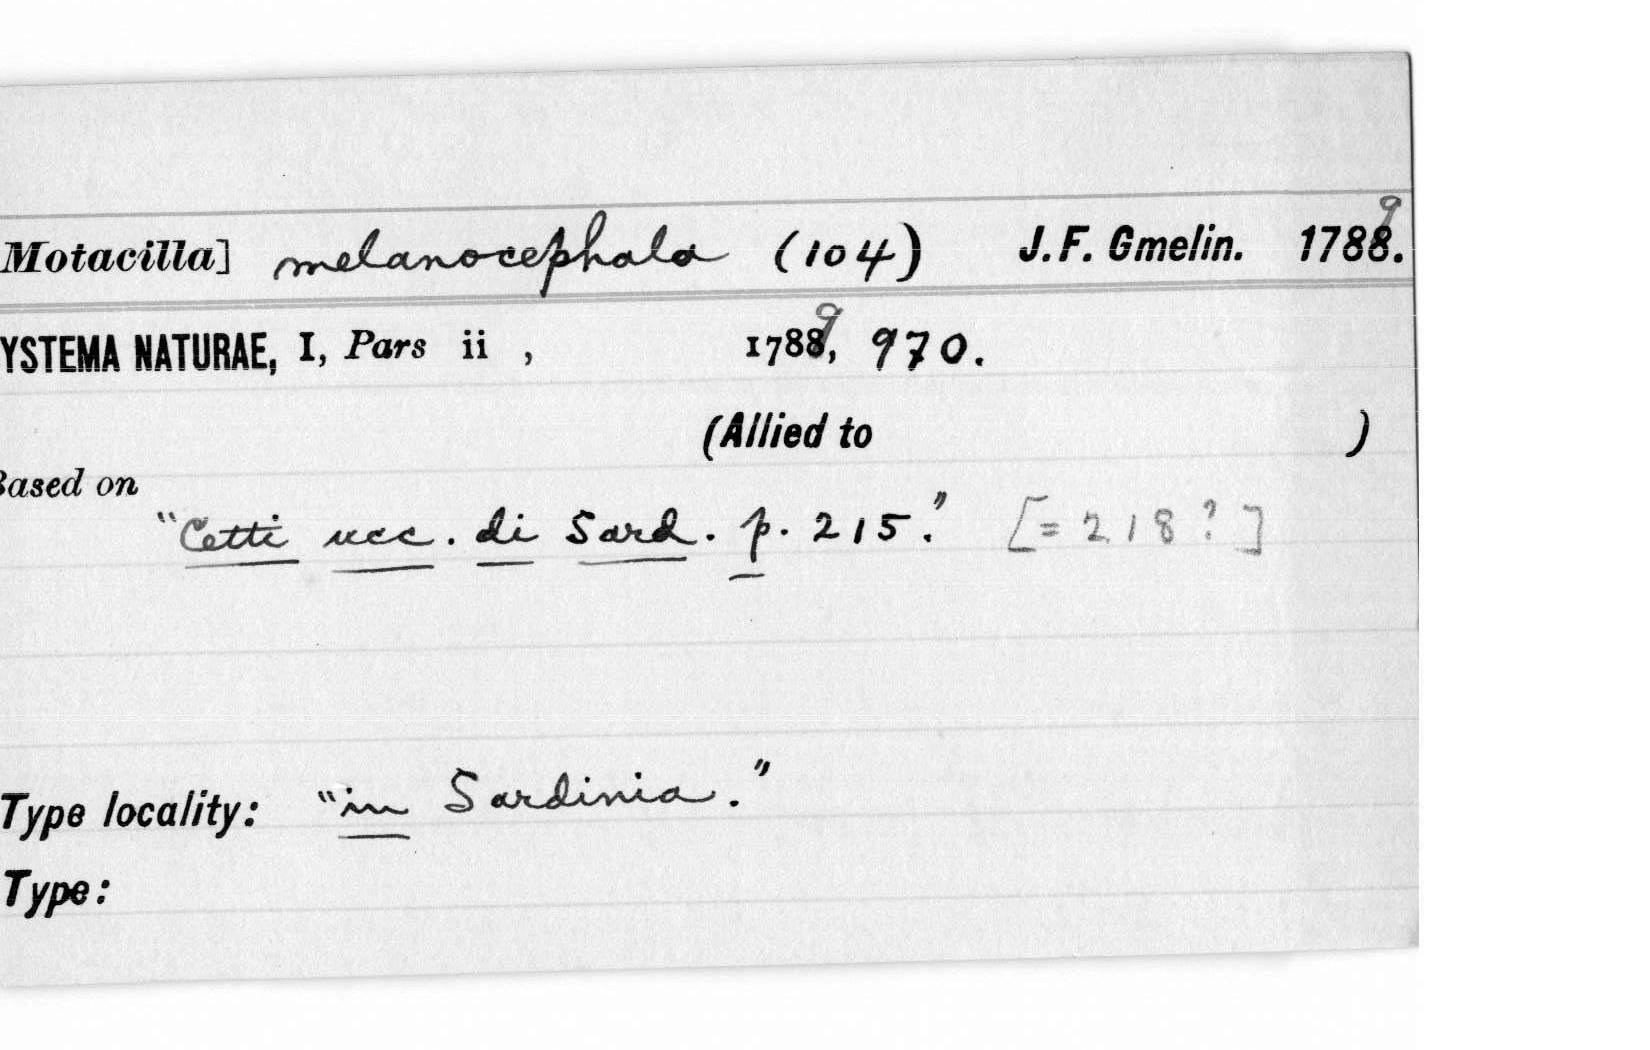 Motacilla] melanocephala (104) J. F. Gmelin. 1788.9
YSTEMA NATURAE, I, Pars ii , 1788,9 970.
(Allied to )
Based on
"Cetti ucc. di Sard. p. 215." [= 218?]
Type locality: "in Sardinia."
Type: